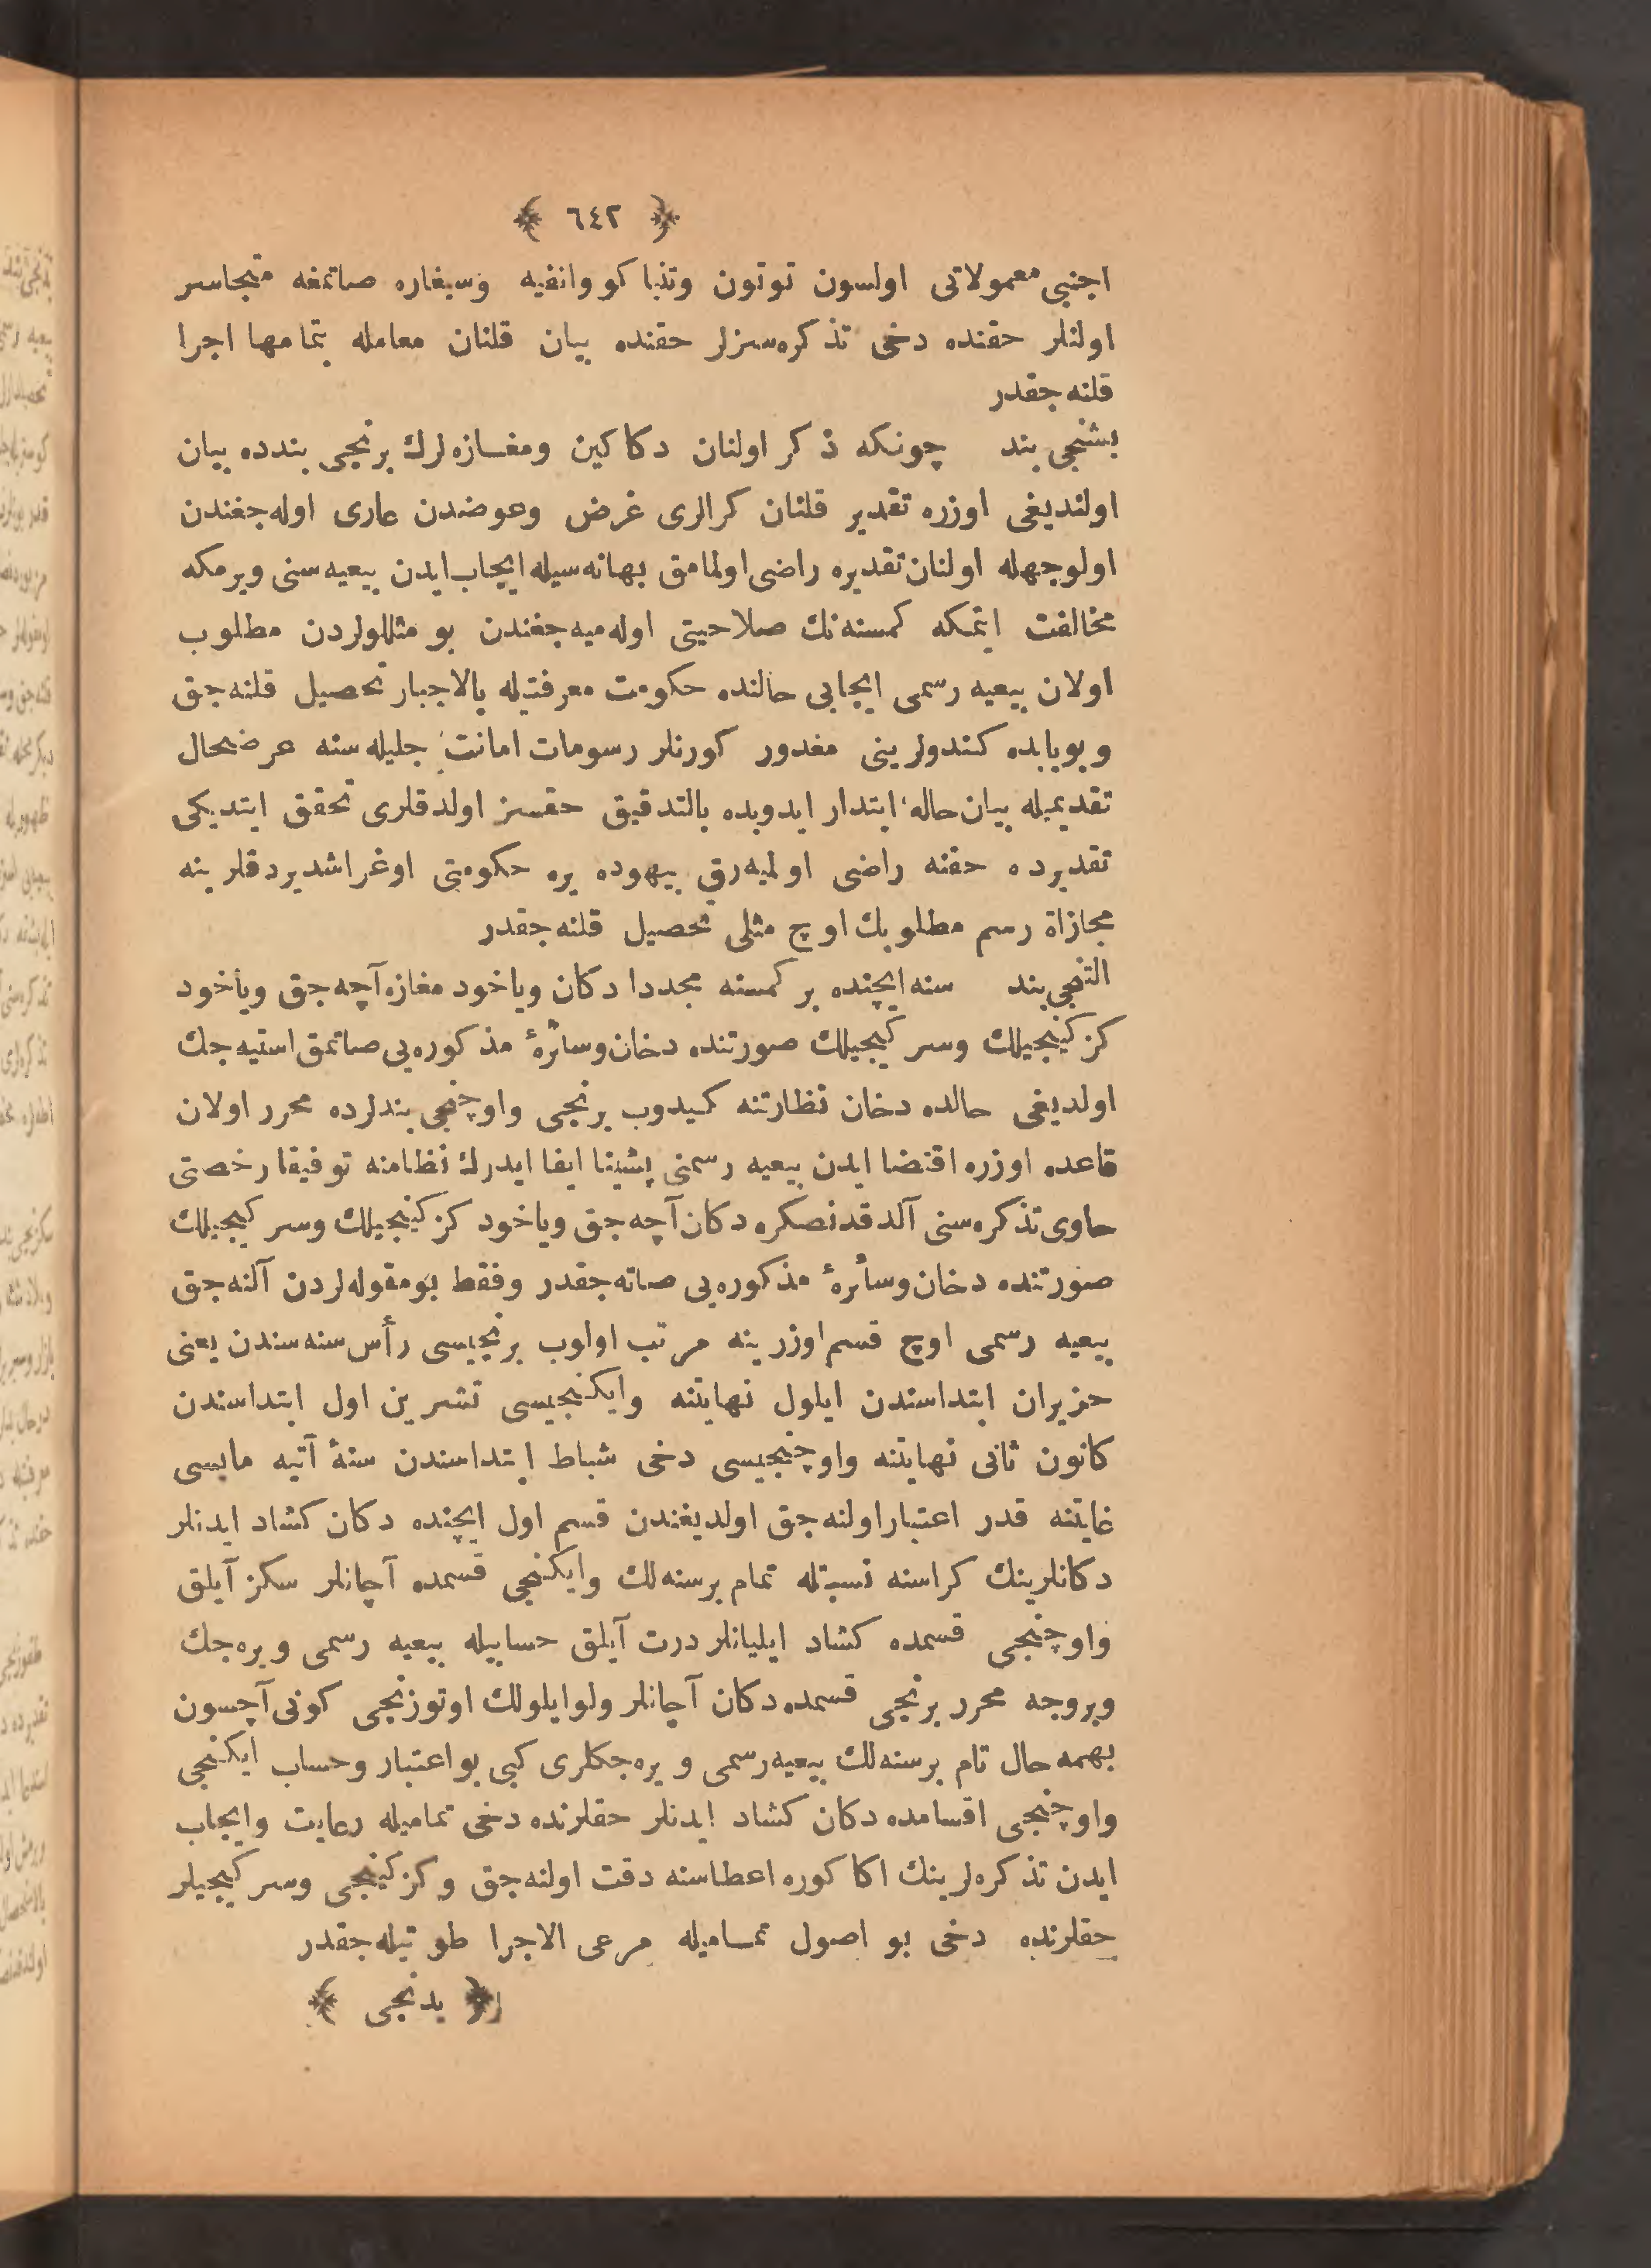 ﴿ ٦٤٢ ﴾
اجنبی معمولاتی اولسون توتون وتنباكو وانفیه وسیغاره صاتمغه متجاسر
اولنلر حقنده دخی تذكره‌سزلر حقنده بیان قلنان معامله بتمامها اجرا
قلنه جقدر
بشنجی بند چونكه ذكر اولنان دكاكین ومغازه‌لرك برنجی بندده بیان
اولندیغی اوزره تقدیر قلنان كرالری غرض وعوضدن عاری اوله‌جغندن
اولوجهله اولنان تقدیره راضی اولمامق بهانه‌سیله ایجاب ایدن بیعیه‌سنی ویرمكه
مخالفت ایتمكه كمسنه‌نك صلاحیتی اوله‌میه‌جغندن بو مثللولردن مطلوب
اولان بیعیه رسمی ایجابی حالنده حكومت معرفتیله بالاجبار تحصیل قلنه‌جق
وبوبابده كندولرینی مغدور كورنلر رسومات امانت جلیله‌سنه عرضحال
تقدیمیله بیان حاله ابتدار ایدوبده بالتدقیق حقسز اولدقلری تحقق ایتدیكی
تقدیرده حقنه راضی اولمیه‌رق بیهوده یره حكومتی اوغراشدیردقلرینه
مجازاة رسم مطلوبك اوچ مثلی تحصیل قلنه‌جقدر
التنجی بند سنه ایچنده بر كمسنه مجددا دكان ویاخود مغازه آچه‌جق ویاخود
كزكینجیلك وسركیجیلك صورتنده دخان وسائرهٔ مذكوره‌یی صاتمق استیه‌جك
اولدیغی حالده دخان نظارتنه كیدوب برنجی واوچنجی بندلرده محرر اولان
قاعده اوزره اقتضا ایدن بیعیه رسمنی پشینا ایفا ایدرك نظامنه توفیقا رخصتی
حاوی تذكره‌سنی آلدقدنصكره دكان آچه‌جق ویاخود كزكینجیلك وسركیجیلك
صورتنده دخان وسائرهٔ مذكوره‌یی صاته‌جقدر وفقط بومقوله‌لردن آلنه‌جق
بیعیه رسمی اوچ قسم اوزرینه مرتب اولوب برنجیسی رأس سنه‌سندن یعنی
حزیران ابتداسندن ایلول نهایتنه وایكنجیسی تشرین اول ابتداسندن
كانون ثانی نهایتنه واوچنجیسی دخی شباط ابتداسندن سنهٔ آتیه مایسی
غایتنه قدر اعتبار اولنه‌جق اولدیغندن قسم اول ایچنده دكان كشاد ایدنلر
دكانلرینك كراسنه نسبتله تمام برسنه‌لك وایكنجی قسمده آچانلر سكز آیلق
واوچنجی قسمده كشاد ایلیانلر درت آیلق حسابیله بیعیه رسمی ویره‌جك
وبروجه محرر برنجی قسمده دكان آچانلر ولو ایلولك اوتوزنجی كونی آچسون
بهمه‌حال تام برسنه‌لك بیعیه رسمی ویره‌جكلری كبی بو اعتبار وحساب ایكنجی
واوچنجی اقسامده دكان كشاد ایدنلر حقلرنده دخی تمامیله رعایت وایجاب
ایدن تذكره‌لرینك اكا كوره اعطاسنه دقت اولنه‌جق وكزكینجی وسركیجیلر
حقلرنده دخی بو اصول تمامیله مرعی الاجرا طوتیله‌جقدر
﴿ یدنجی ﴾